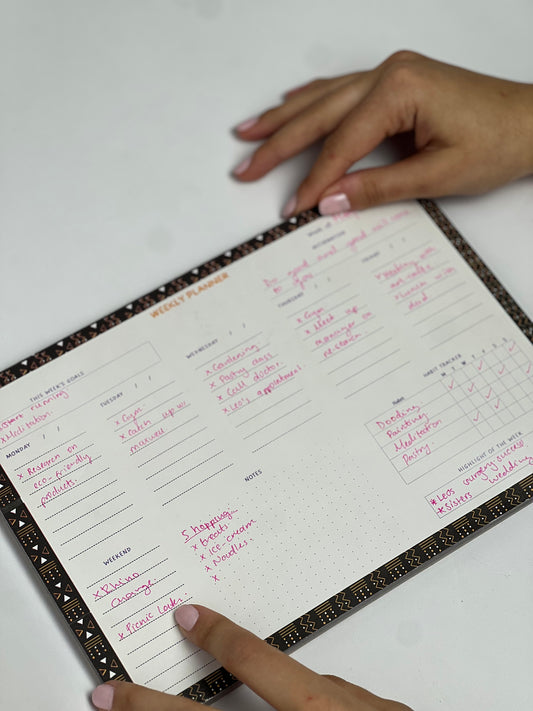 WEEKLY PLANNER
Week of
AFFIRMATION
Do good and good will come
to you
THIS WEEK'S GOALS
start running
x Meditation.
MONDAY
x Research on
eco-friendly
products.
TUESDAY
x Gym
x catch up w.
maxwell
WEDNESDAY
x Gardening
x Pastry class
x Call doctor.
x Leo's appointment
THURSDAY
x Gym
x Meet up
manager on
research.
FRIDAY
x Meeting with
x Lunch with
dad
WEEKEND
x Rhino
Charge.
x Picnic
NOTES
Shopping
x treats
x ice-cream
x Noodles.
x
HABIT TRACKER
Habit
M T W T F S S
Dooding
Painting
Meditation
Pastry
HIGHLIGHT OF THE WEEK
* Leos surgery success
* sisters wedding